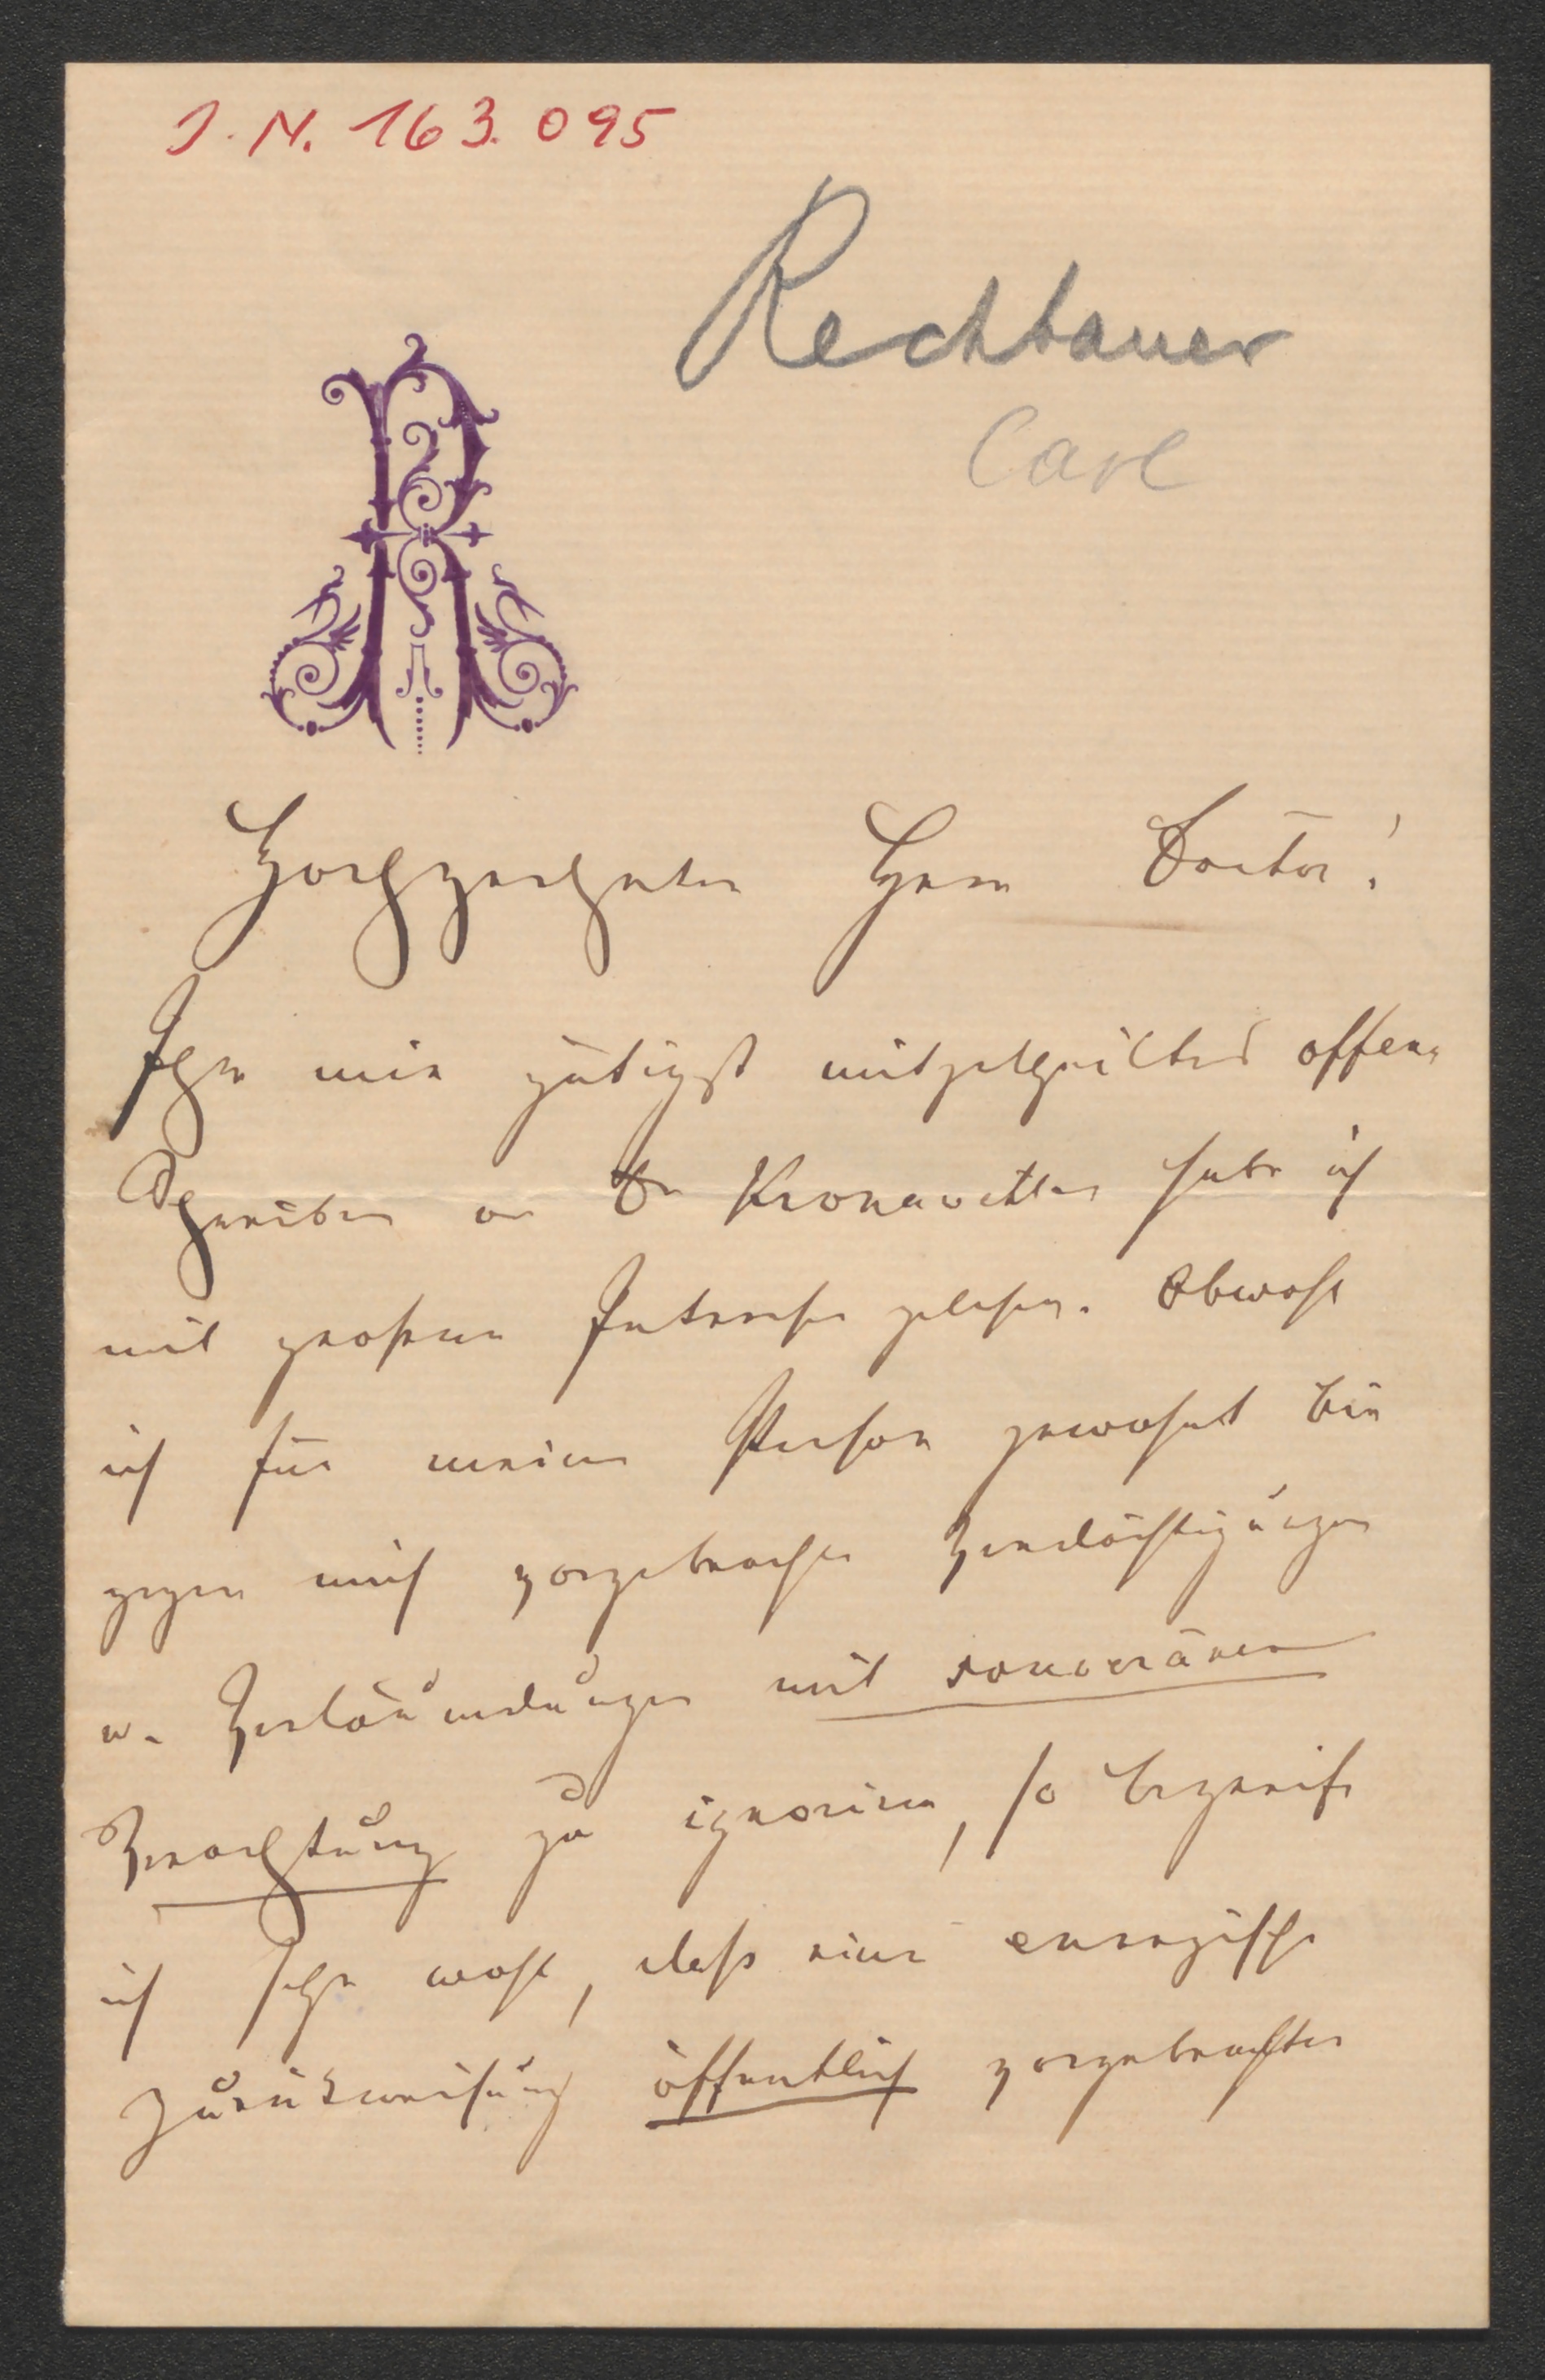 J. N. 163.095
Rechbauer
Carl
R
Hochverehrter Herr Doctor!
Ihr mir gütigst mitgetheiltes offenes
Schreiben an Dr Kronawetter habe ich
mit großem Interesse gelesen. Obwohl
ich für meine Person gewohnt bin
gegen mich vorgebrachte Verdächtigungen
u. Verläumdungen mit souveräner
Verachtung zu ignoriren, so begreife
ich sehr wohl, daß eine energische
Zurückweisung öffentlich vorgebrachter